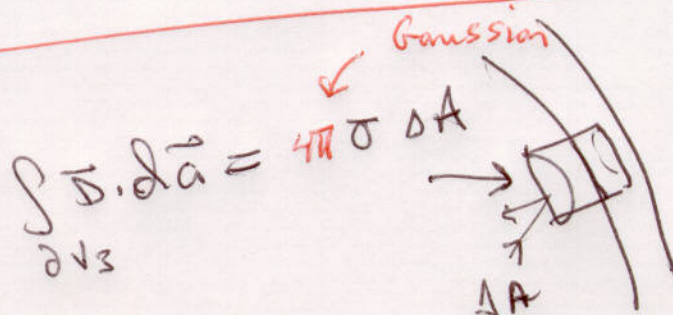 Gaussian
∫ D⃗ · da⃗ = 4π σ ΔA
∂V3
ΔA